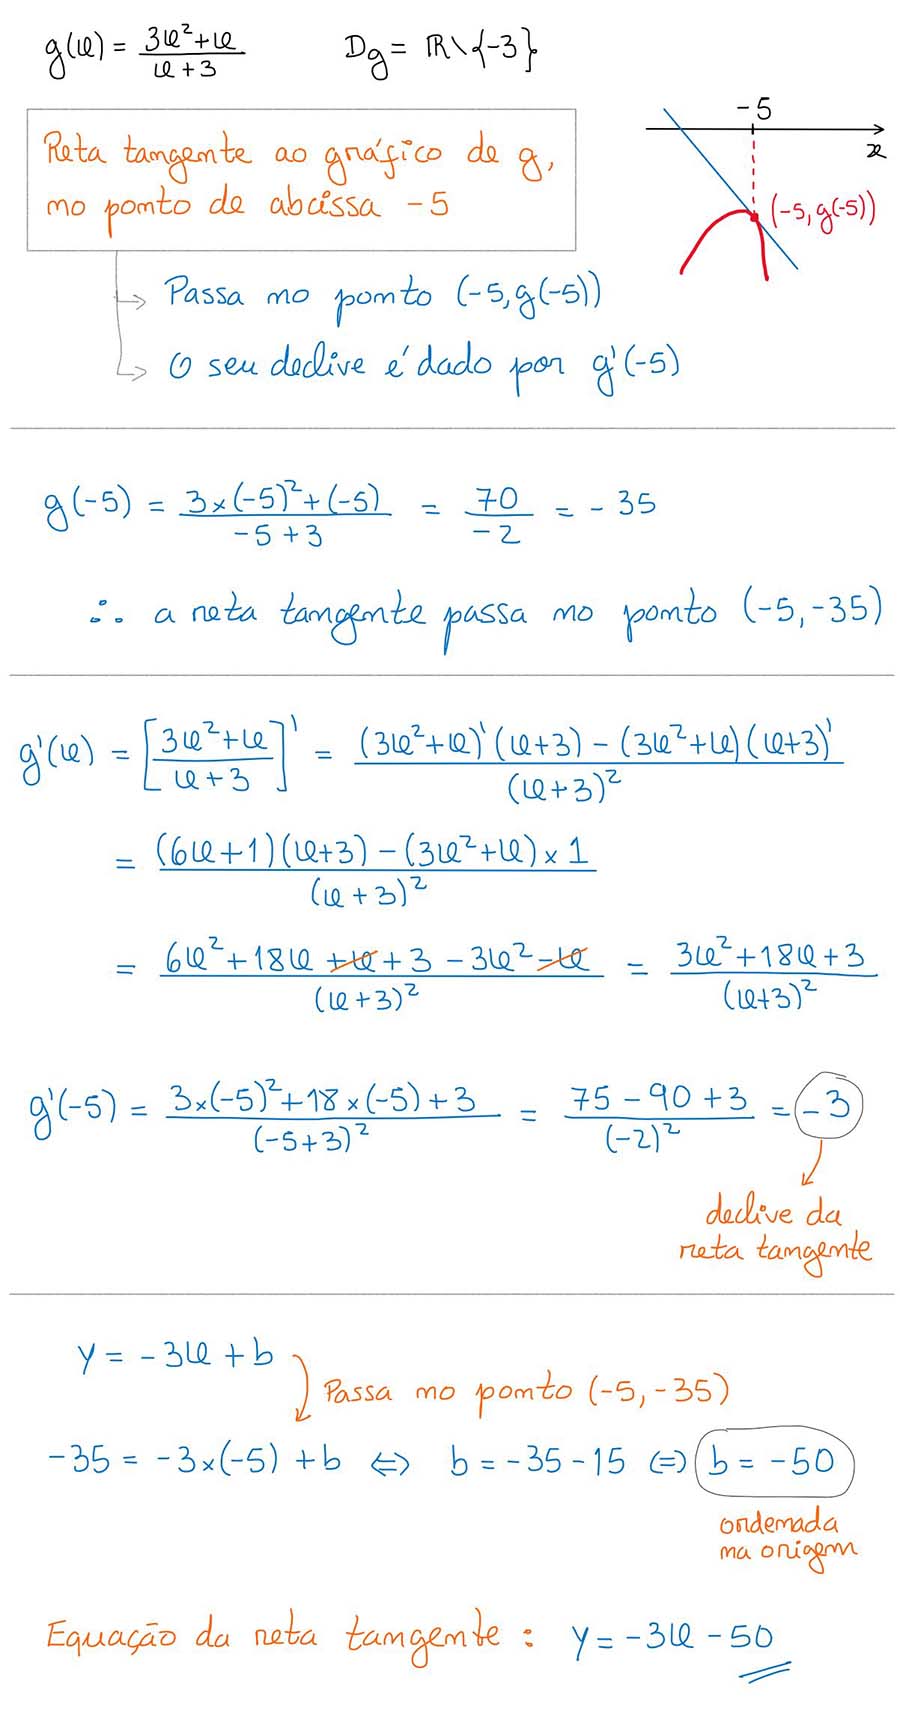 g(x) = (3x²+x)/(x+3)    Dg = ℝ\{-3}
Reta tangente ao gráfico de g,
no ponto de abcissa -5
-5
x
(-5, g(-5))
Passa no ponto (-5, g(-5))
O seu declive é dado por g'(-5)
g(-5) = (3×(-5)²+(-5))/(-5+3) = 70/-2 = -35
∴ a reta tangente passa no ponto (-5, -35)
g'(x) = [(3x²+x)/(x+3)]' = ((3x²+x)'(x+3) - (3x²+x)(x+3)')/(x+3)²
= ((6x+1)(x+3) - (3x²+x)×1)/(x+3)²
= (6x²+18x+x+3-3x²-x)/(x+3)² = (3x²+18x+3)/(x+3)²
g'(-5) = (3×(-5)²+18×(-5)+3)/(-5+3)² = (75-90+3)/(-2)² = -3
declive da
reta tangente
y = -3x + b
Passa no ponto (-5, -35)
-35 = -3×(-5) + b ⇔ b = -35 - 15 ⇔ b = -50
ordenada
na origem
Equação da reta tangente : y = -3x - 50